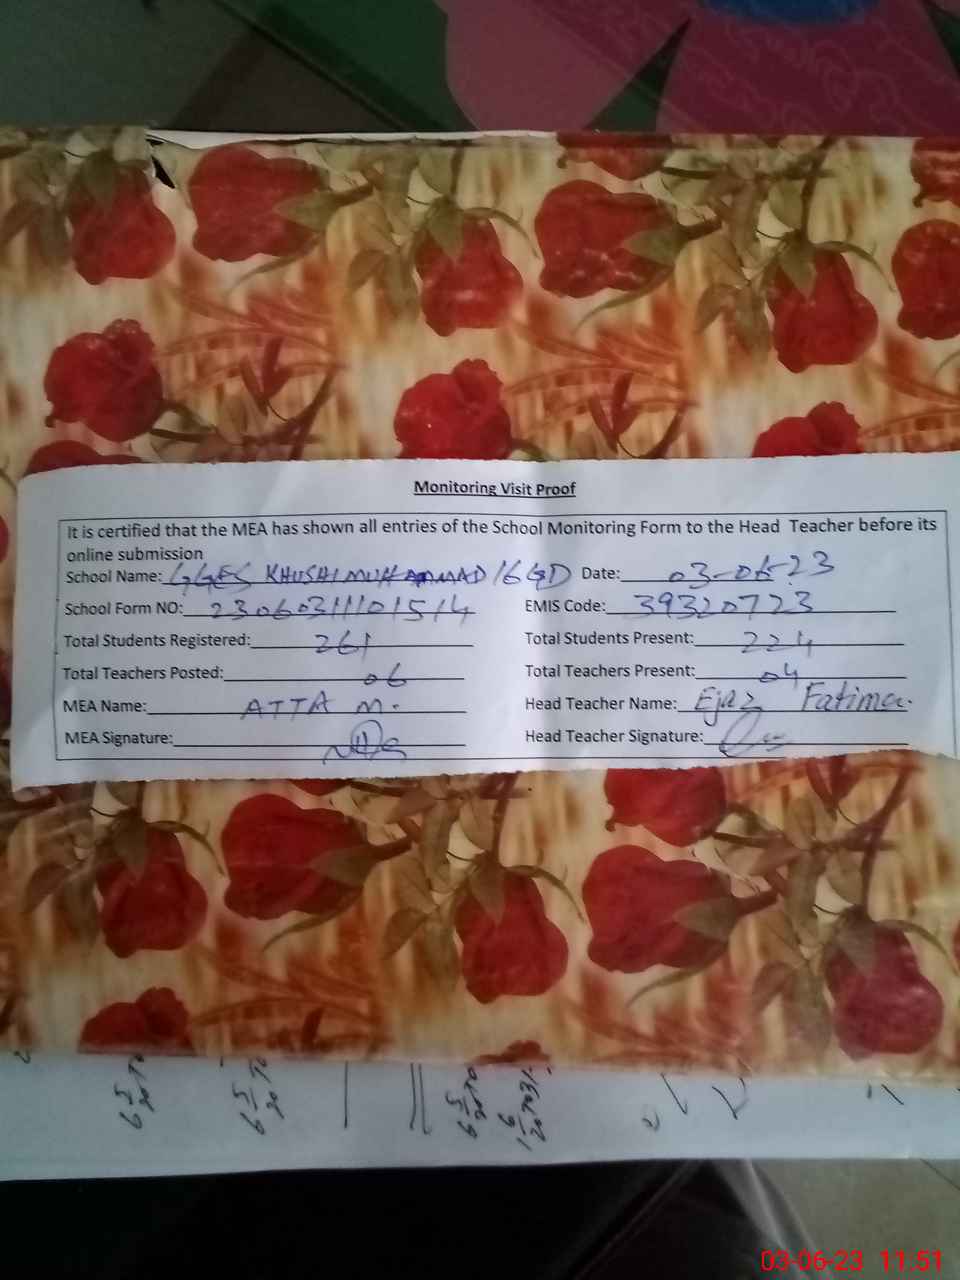 Monitoring Visit Proof
It is certified that the MEA has shown all entries of the School Monitoring Form to the Head Teacher before its
online submission
School Name: GGES KHUSHI MUHAMMAD 16 GD Date: 03-06-23
School Form NO: 23060311101514 EMIS Code: 39320723
Total Students Registered: 261 Total Students Present: 224
Total Teachers Posted: 06 Total Teachers Present: 04
MEA Name: ATTA M. Head Teacher Name: Ejaz Fatima.
MEA Signature: Head Teacher Signature:
03-06-23 11:51